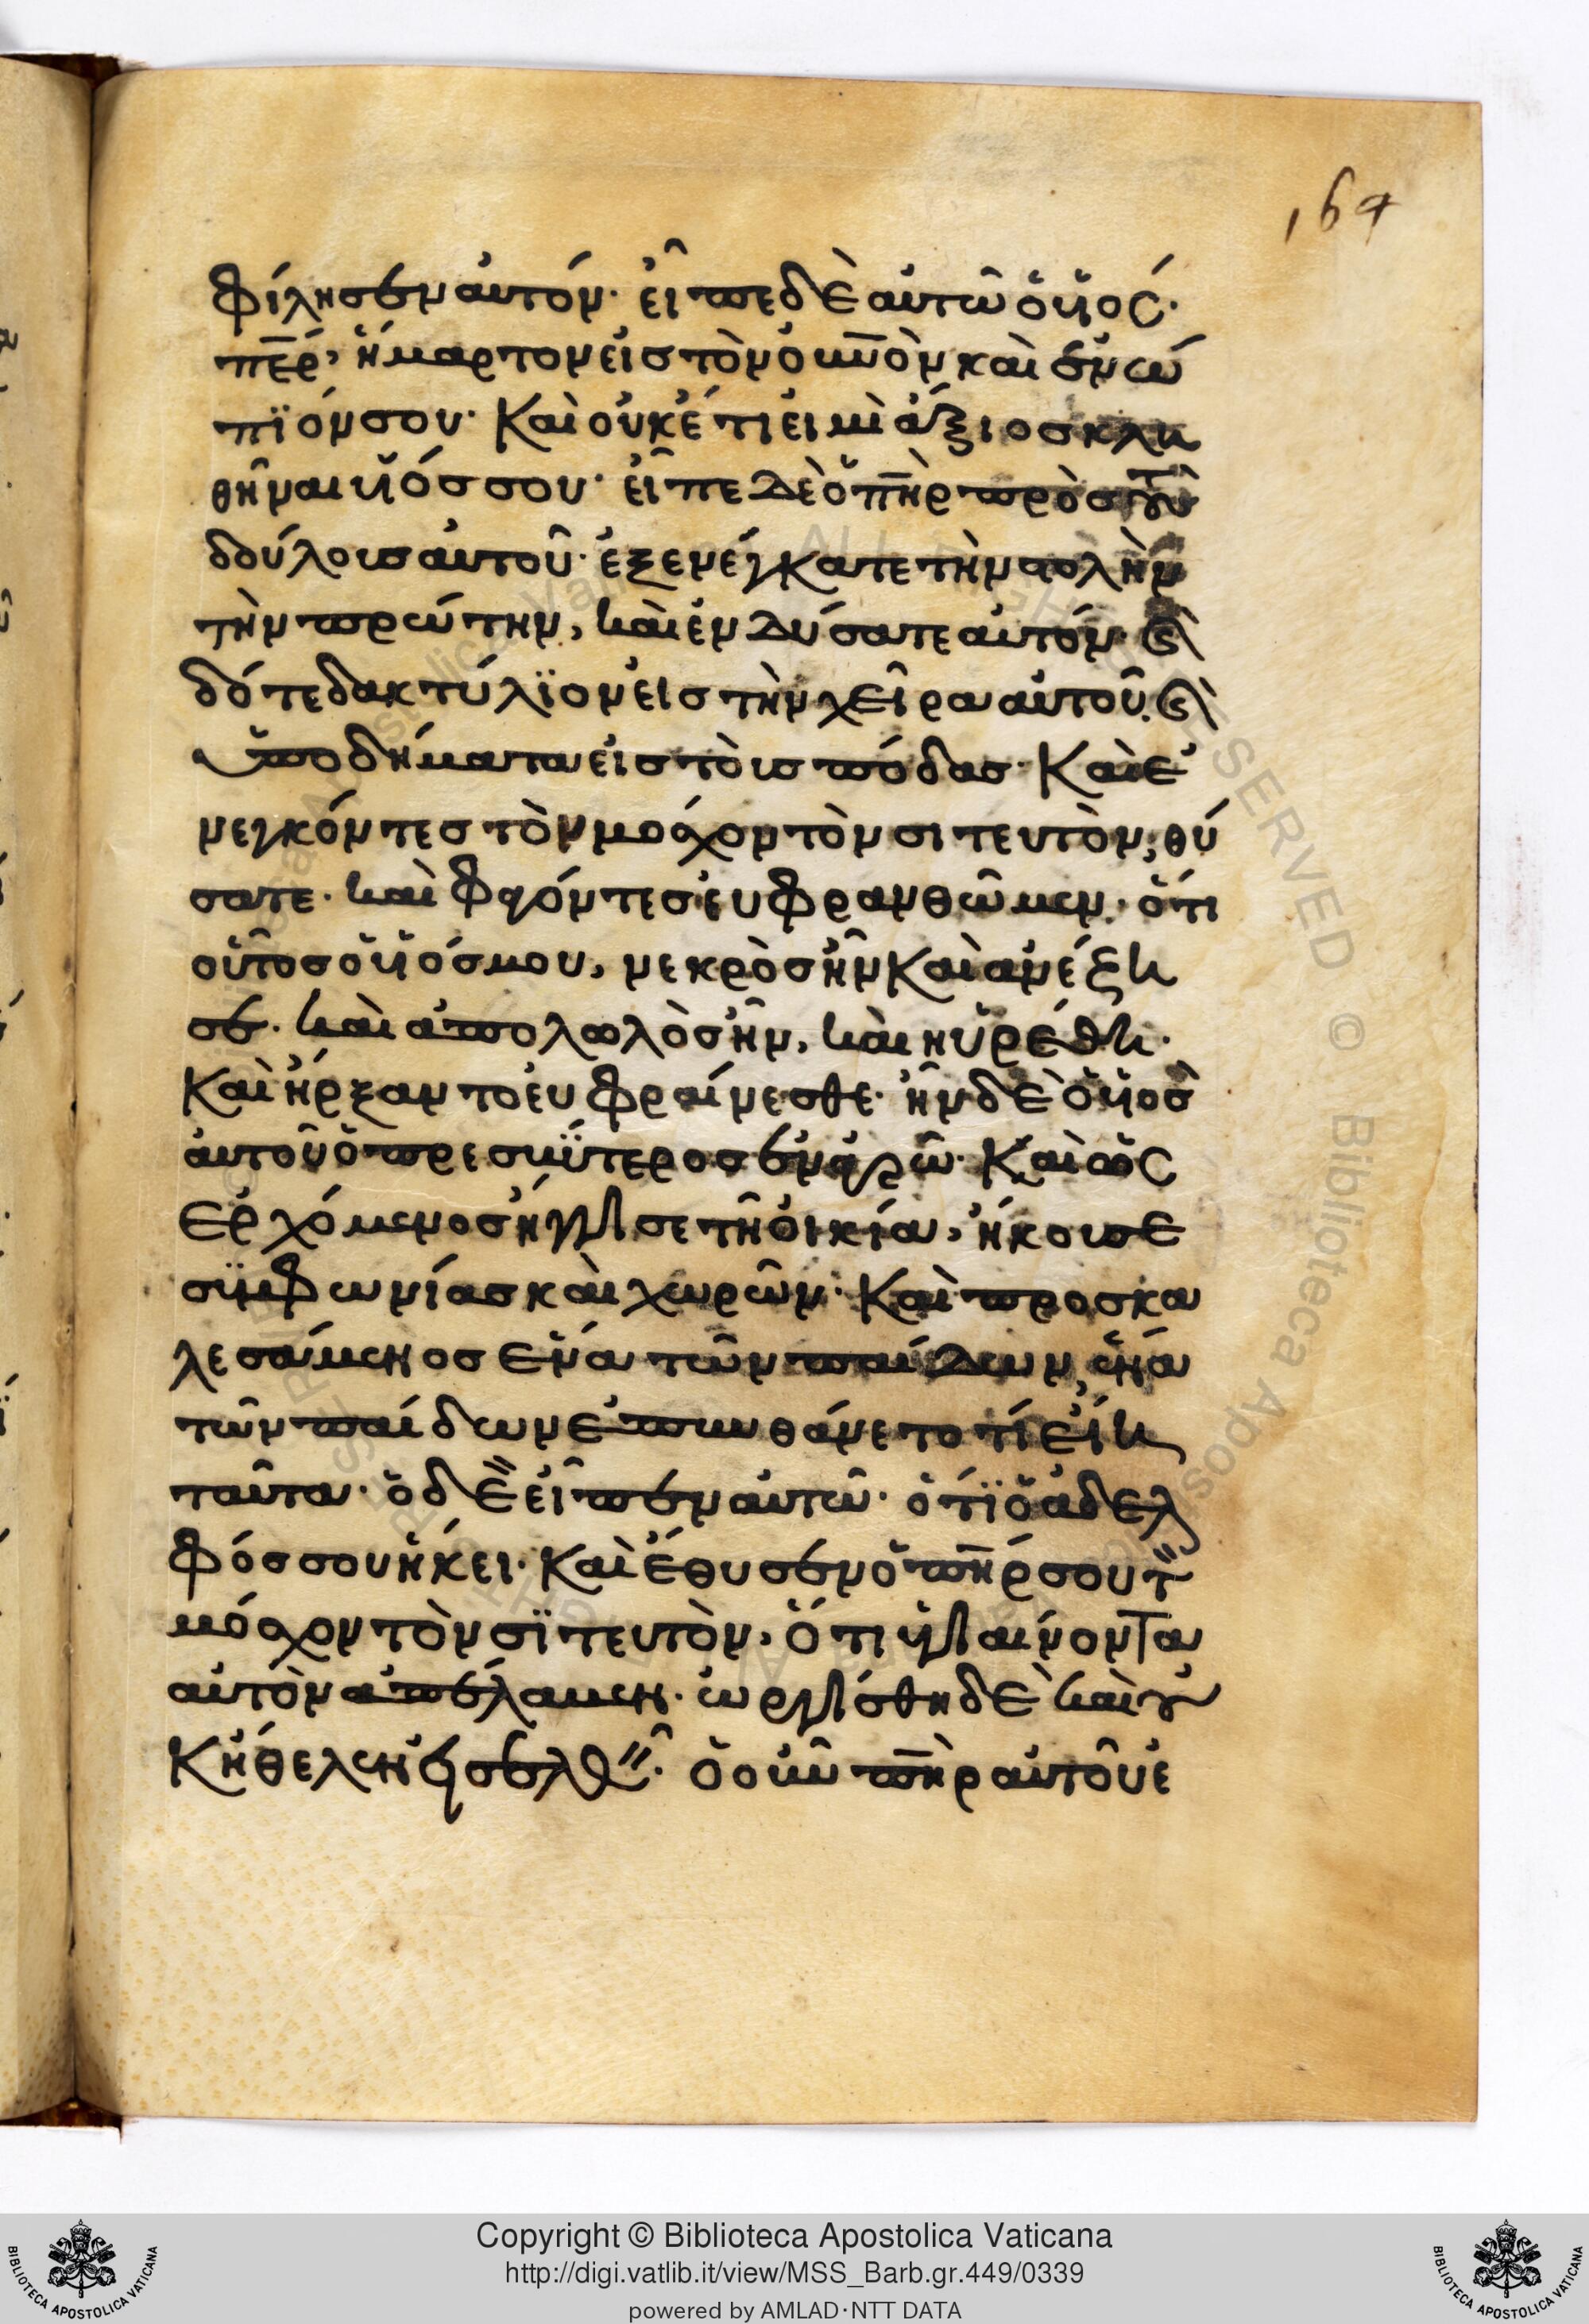 164
φίλησεν αὐτόν· εἶπε δὲ αὐτῶ ὁ υἱός·
περ, ἥμαρτον εἰς τὸν οὐνὸν καὶ ἐνώ
πϊόν σου· Καὶ οὐκέτι εἰμὶ ἄξιος κλη
θῆναι υἱός σου· εἶπε δὲ ὁ πὴρ πρὸς τοὺ
δούλους αὐτοῦ· ἐξενέγκατε τὴν στολὴν
τὴν πρώτην, καὶ ἐνδύσατε αὐτόν· καὶ
δότε δακτύλϊον εἰς τὴν χεῖρα αὐτοῦ. καὶ
ὑποδήματα εἰς τοὺς πόδας· Καὶ ἐ
νεγκόντες τὸν μόσχον τὸν σιτευτὸν, θύ
σατε· καὶ φαγόντες εὐφρανθῶμεν· ὅτι
οὗτος ὁ υἱός μου, νεκρὸς ἦν Καὶ ἀνέζη
σε· καὶ ἀπολωλὸς ἦν, καὶ ηὑρέθη·
Καὶ ἤρξαντο εὐφραίνεσθε· ἦν δὲ ὁ υἱὸς
αὐτοῦ ὁ πρεσβϋτερος ἐν ἀγρῶ· Καὶ ὡς
ἐρχόμενος ἤγγισε τῆ οἰκία, ἤκουσε
συμφωνίας καὶ χωρῶν· Καὶ προσκα
λεσάμενος ἕνα τῶν παίδων, ἕνα
τῶν παίδων ἐπυνθάνετο τί εἴη
ταῦτα· ὁ δὲ εἶπεν αὐτῶ· ὅτϊ ὁ ἀδελ
φός σου ἥκει· Καὶ ἔθυσεν ὁ πήρ σου τὸν
μόσχον τὸν σϊτευτὸν, ὅτι ὑγιαίνοντα
αὐτὸν ἀπέλαβεν· ὠργίσθη δὲ καὶ οὐ
Κ ἤθελεν εἰσελθεῖν· ὁ οὖν πὴρ αὐτοῦ ἐ
Copyright © Biblioteca Apostolica Vaticana
http://digi.vatlib.it/view/MSS_Barb.gr.449/0339
powered by AMLAD·NTT DATA